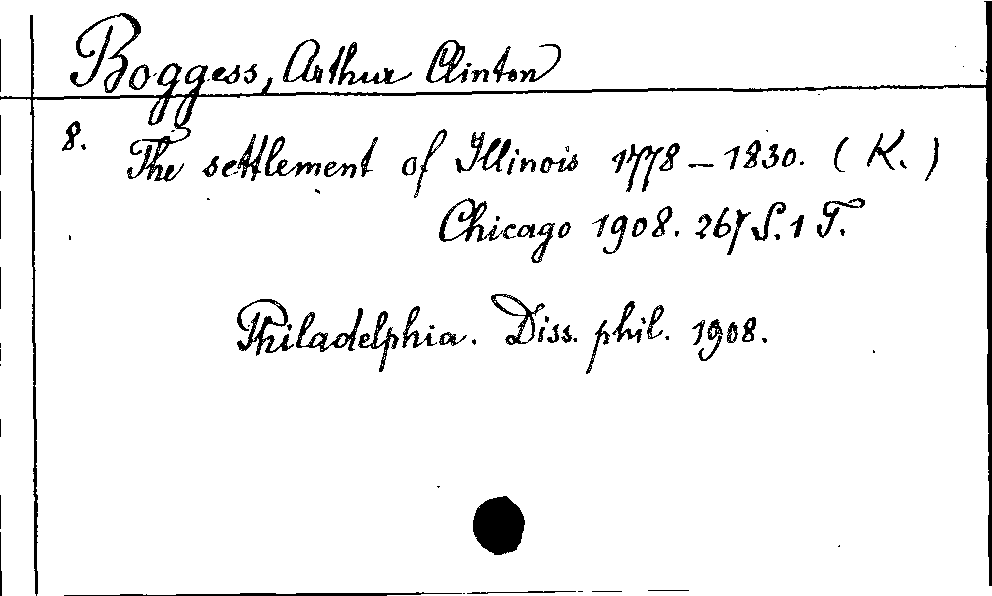 Boggess, Arthur Clinton
8. The settlement of Illinois 1778 – 1830. (K.)
Chicago 1908. 267 S. 1 T.
Philadelphia. Diss. phil. 1908.